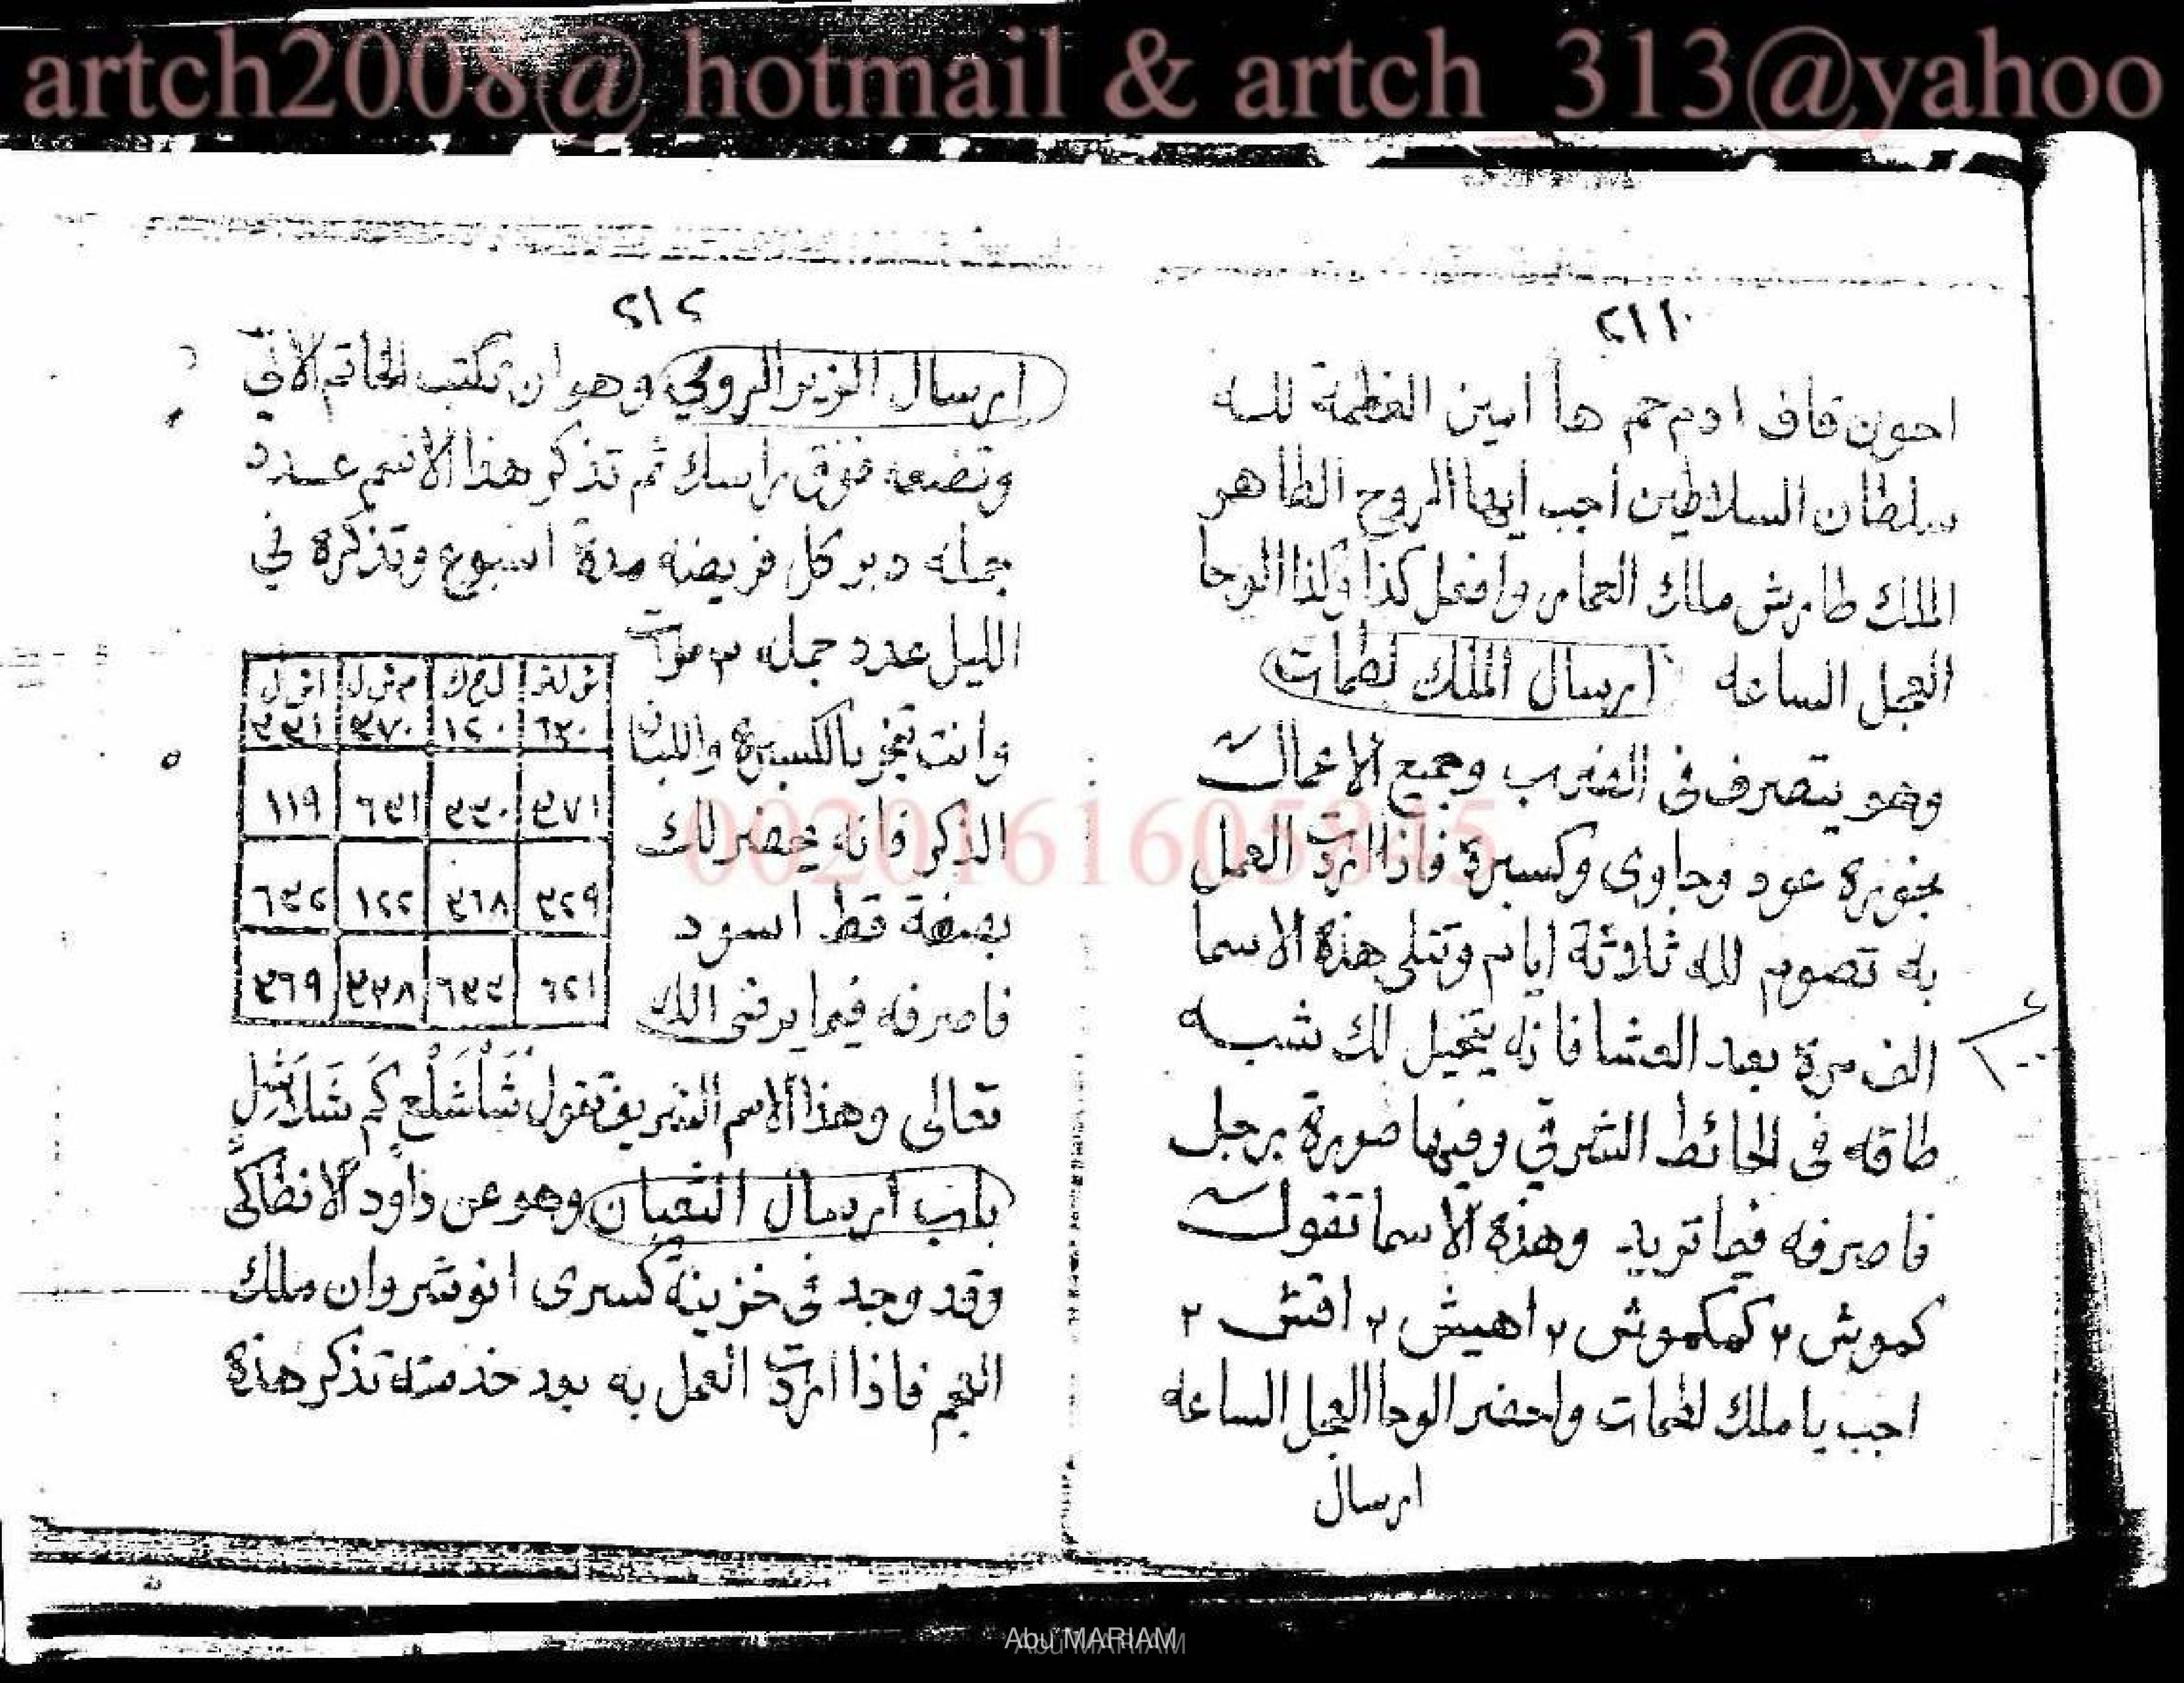 artch2008@ hotmail & artch_313@yahoo
٢١١
احون قاف ادم حم هأ امين العظمة لله
سلطان السلاطين اجب ايها الروح الطاهر
الملك طارش ملك العمار وافعل كذا وكذا الوحا
العجل الساعه ارسال الملك لطمات
وهو يتصرف فى الضرب وجميع الاعمال
بخوره عود وجاوى وكسبرة فاذا اردت العمل
به تصوم لله ثلاثة ايام وتتلى هذة الاسما
الف مرة بعد العشا فانه يتخيل لك شبه
طاقه فى الحائط الشرقي وفيها صورة رجل
فاصرفه فيما تريد وهذة الاسما تقول
كموش ٢ كمكموش ٢ اهيش ٢ اقش ٢
اجب يا ملك لطمات واحضر الوحا العجل الساعه
ارسال
٢١٢
ارسال الزير الرومي وهو ان تكتب الخاتم الاتى
وتضعه فوق راسك ثم تذكر هذا الاسم عدد
جمله دبر كل فريضه مدة اسبوع وتذكرة في
الليل عدد جمله ٣ مرات
وانت تبخر بالكسبرة واللبان
الذكر فانه يحضر لك
بصفة قط اسود
فاصرفه فيما يرضى الله
٦٢٠ ١٢٠ ٣٧٠
٣٧١ ٦٤١ ١١٩
٣٦٨ ١٢٢ ٦٤٢
٦٢١ ٣٦٩
تعالى وهذا الاسم الشريف تقول شَأشَلْعٍ كَم شَلَاشِلٍ
باب ارسال الثعبان وهو عن داود الانطاكى
وقد وجد فى خزينة كسرى انوشروان ملك
العجم فاذا اردت العمل به بعد خدمته تذكر هذة
0020161605845
Abu MARIAM